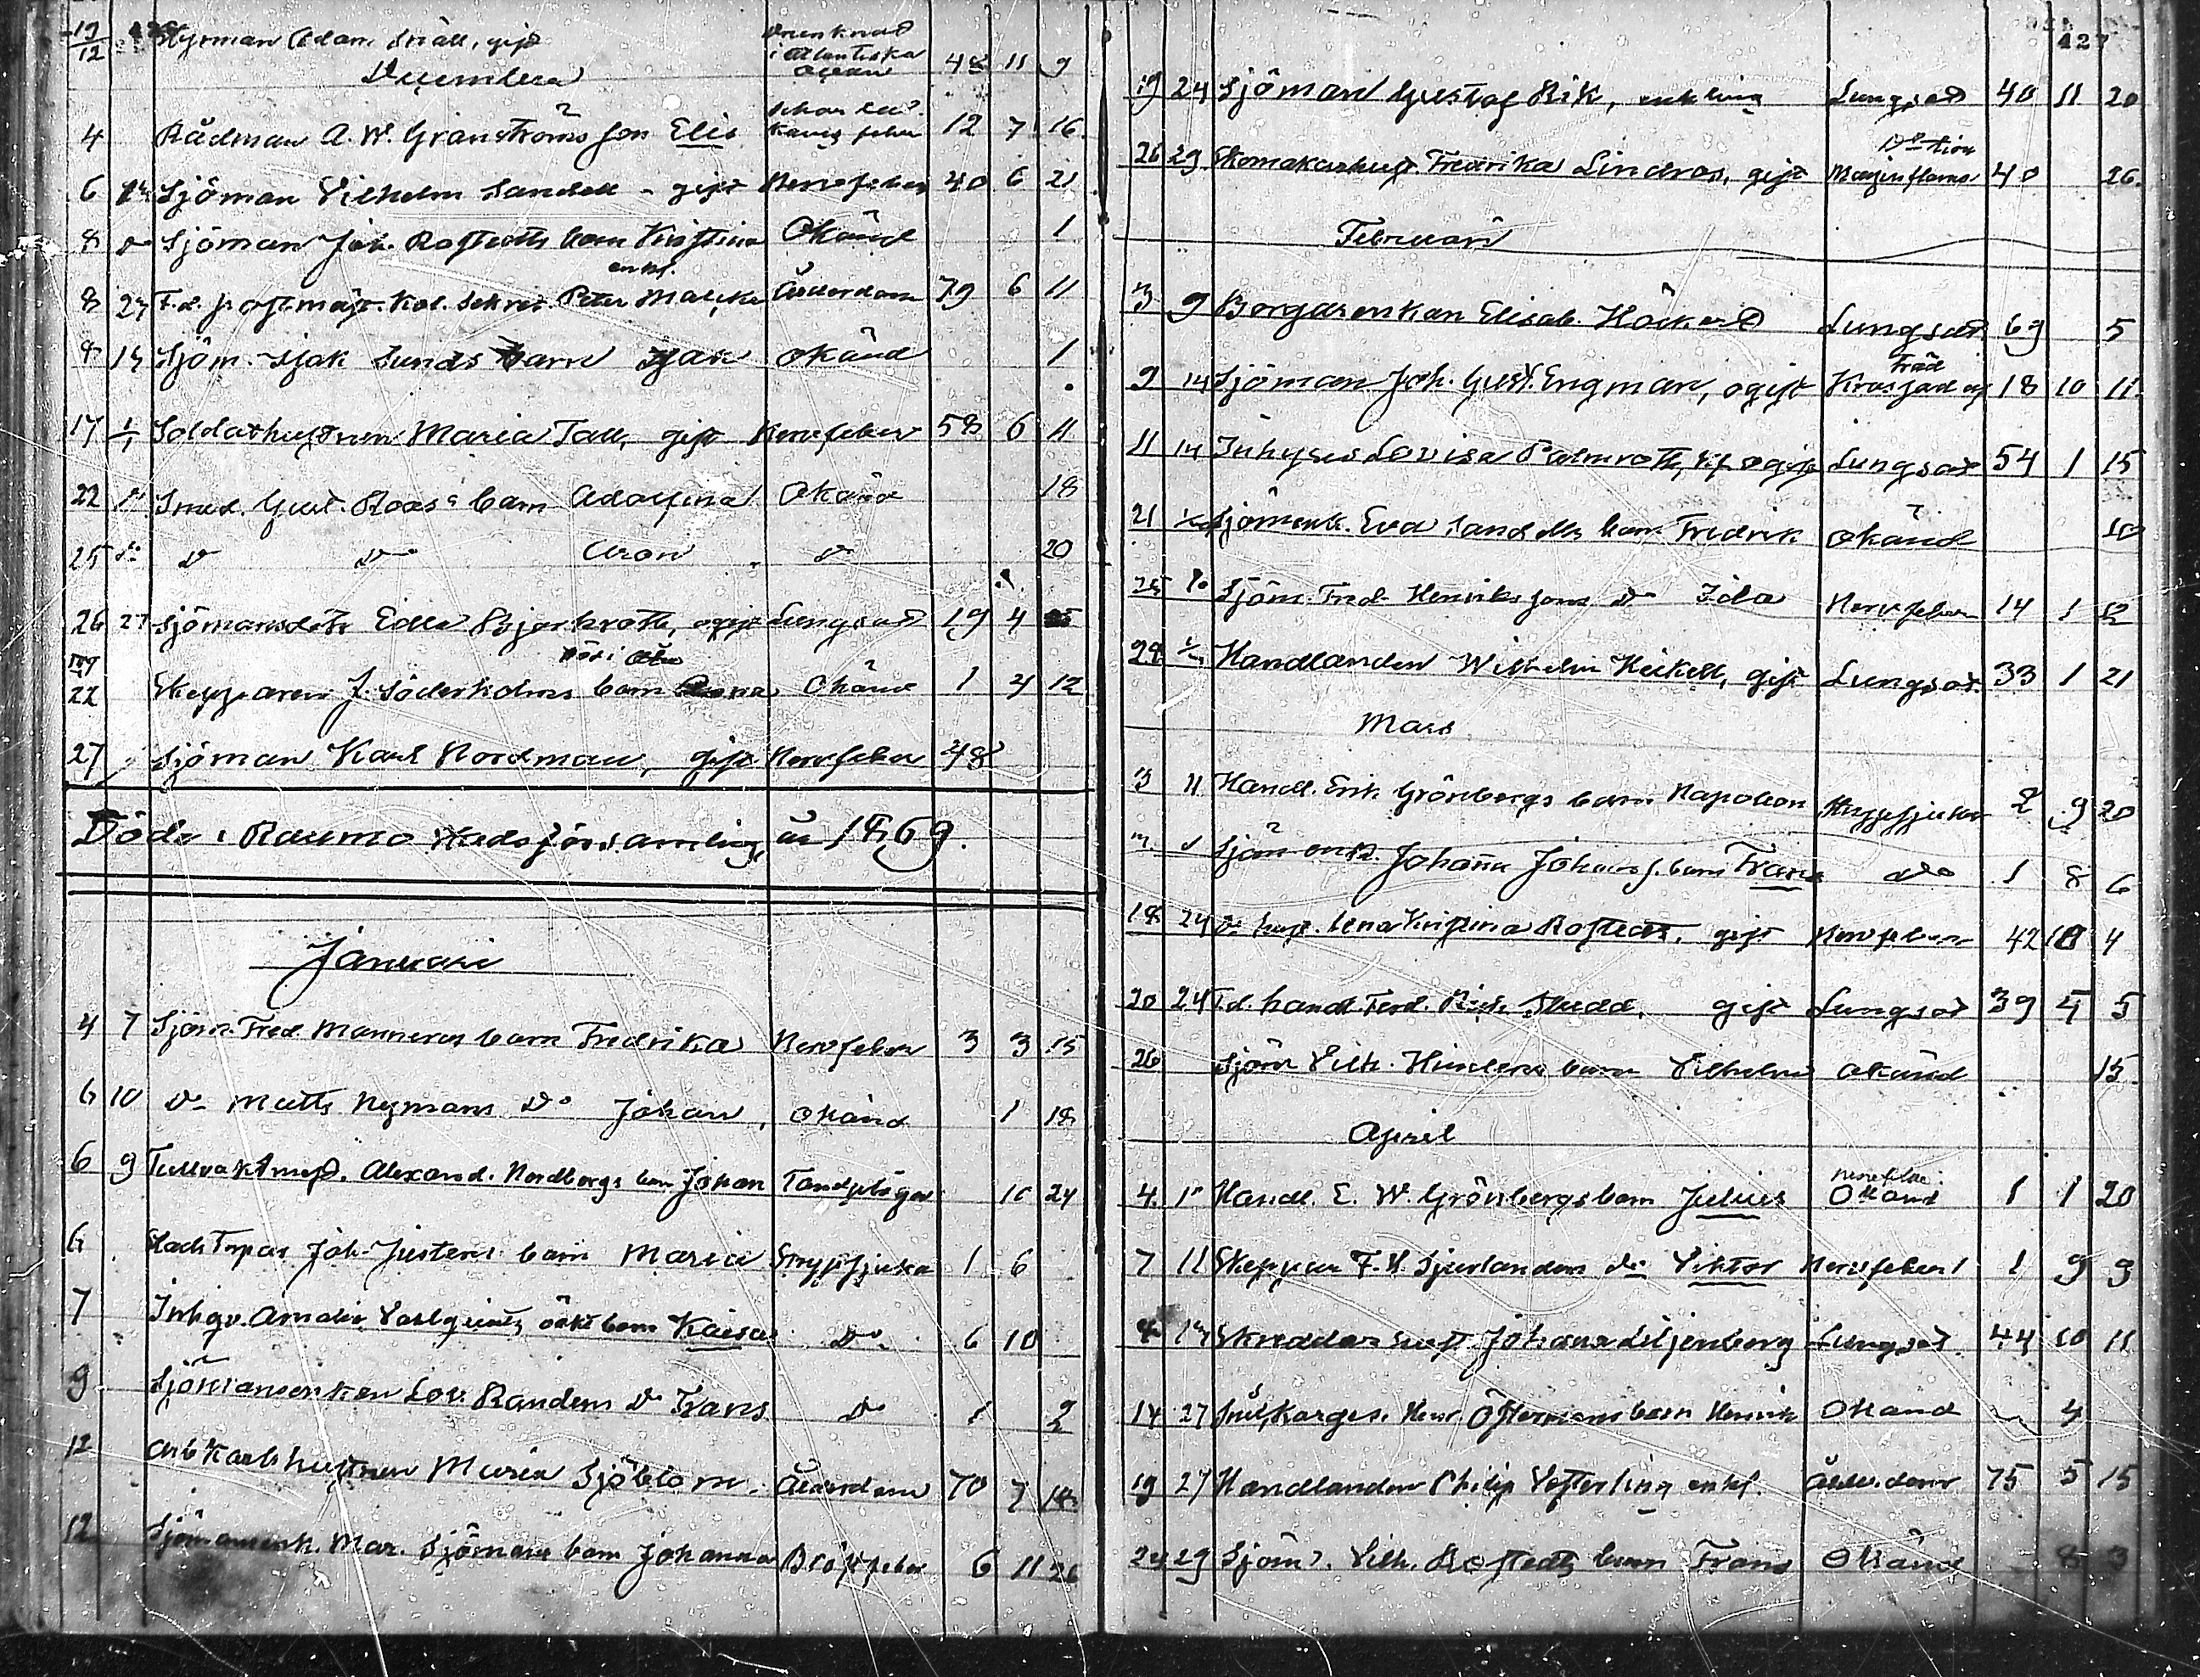 19/12 Styrman Adam Snäll, gift Drunknad i Atlantiska Ocean 42 11 9
December
4 Rådman A. W. Granströms son Elis feber 12 7 16
6 Sjöman Vilhelm Sandell - gift Nervfeber 40 6 21
8 Do Sjöman Joh. Rostedts barn Kristina Okänd 1
8 27 F.d. postmäst. Kol. Sekret. Peter enkl. Ålderdom 79 6 11
8 Sjöm. Isak Lunds barn Isak Okänd 1
17 1/1 Soldathustrun Maria Tall, gift Nervfeber 58 6 11
22 Smed. Gust. Roos' barn Adolfina Okänd 18
25 do Do Do Aron Do 20
26 27 Sjömansdotr Edla Bjorkroth, ogift Lungsot 19 4
22 Skepparen J. Söderholms barn död i Åbo Okänd 1 4 12
27 Sjöman Karl Nordman, gift Nervfeber 48
Döde i Raumo Stadsförsamling, år 1869.
Januari
4 7 Sjöm. Fred. Manneros barn Fredrika Nervfeber 3 3 15
6 10 Do Matts Nymans Do Johan, Okänd 1 18
6 9 Tullvaktmest. Alexand. Nordbergs barn Johan Tandplågor 10 24
6 Joh. Justens barn Maria Strypsjuka 1 6
7 Inhys. Amalia Vahlquists oäkt barn Kaisa Do 6 10
9 Sjömansenkan Lov. Randens Do Frans Do 1 2
12 Arbkarlshustrun Maria Sjöblom. Ålderdom 70 7 18
12 Sjömansenk. Mar. Sjömans barn Johanna Bröstfeber 6 11 26
427
19 24 Sjöman Gustaf Rik, enkling Lungsot 40 11 20
26 29 Skomakarhust. Fredrika Lindros, gift 40 26
Februari
3 9 Borgarenkan Elisab. Höckert Lungsot 69 5
9 14 Sjöman Joh. Gust. Engman, ogift 18 10 11
11 14 Inhyses Lovisa Palmroth, ogift Lungsot 54 1 15
21 Sjömenk. Eva Sandells barn Fredrik Okänd 10
25 Sjöm. Fred. Henrikssons Do Ida Nervfeber 14 1 12
29 Handlanden Wilhelm Heikell, gift Lungsot 33 1 21
Mars
3 11 Handl. Erik Grönbergs barn Napoleon Strypsjukan 2 9 20
Sjömenk. Johanna Johanss. barn Frans Do 1 8 6
18 24 Do hust. Lena Kristina Rostedt, gift Nervfeber 42 10 4
20 24 F.d. handl. Ferd. Rich. gift Lungsot 39 5 5
26 Sjöm Vilh. barn Vilhelm Okänd 15
April
4. Handl. E. W. Grönbergs barn Julius Nervfeber Okänd 1 1 20
7 11 Skeppar F. W. Sjerlanders do Viktor Nervfeber 1 9 9
Skräddar hust. Johana Liljenberg Lungsot. 44 10 11
14 27 Henr. Östermans barn Henrik Okänd 4
19 27 Handlanden Philip Vesterling enkl. Ålderdom 75 5 15
24 29 Sjöm. Vilh. Rostedts barn Frans Okänd 8 3